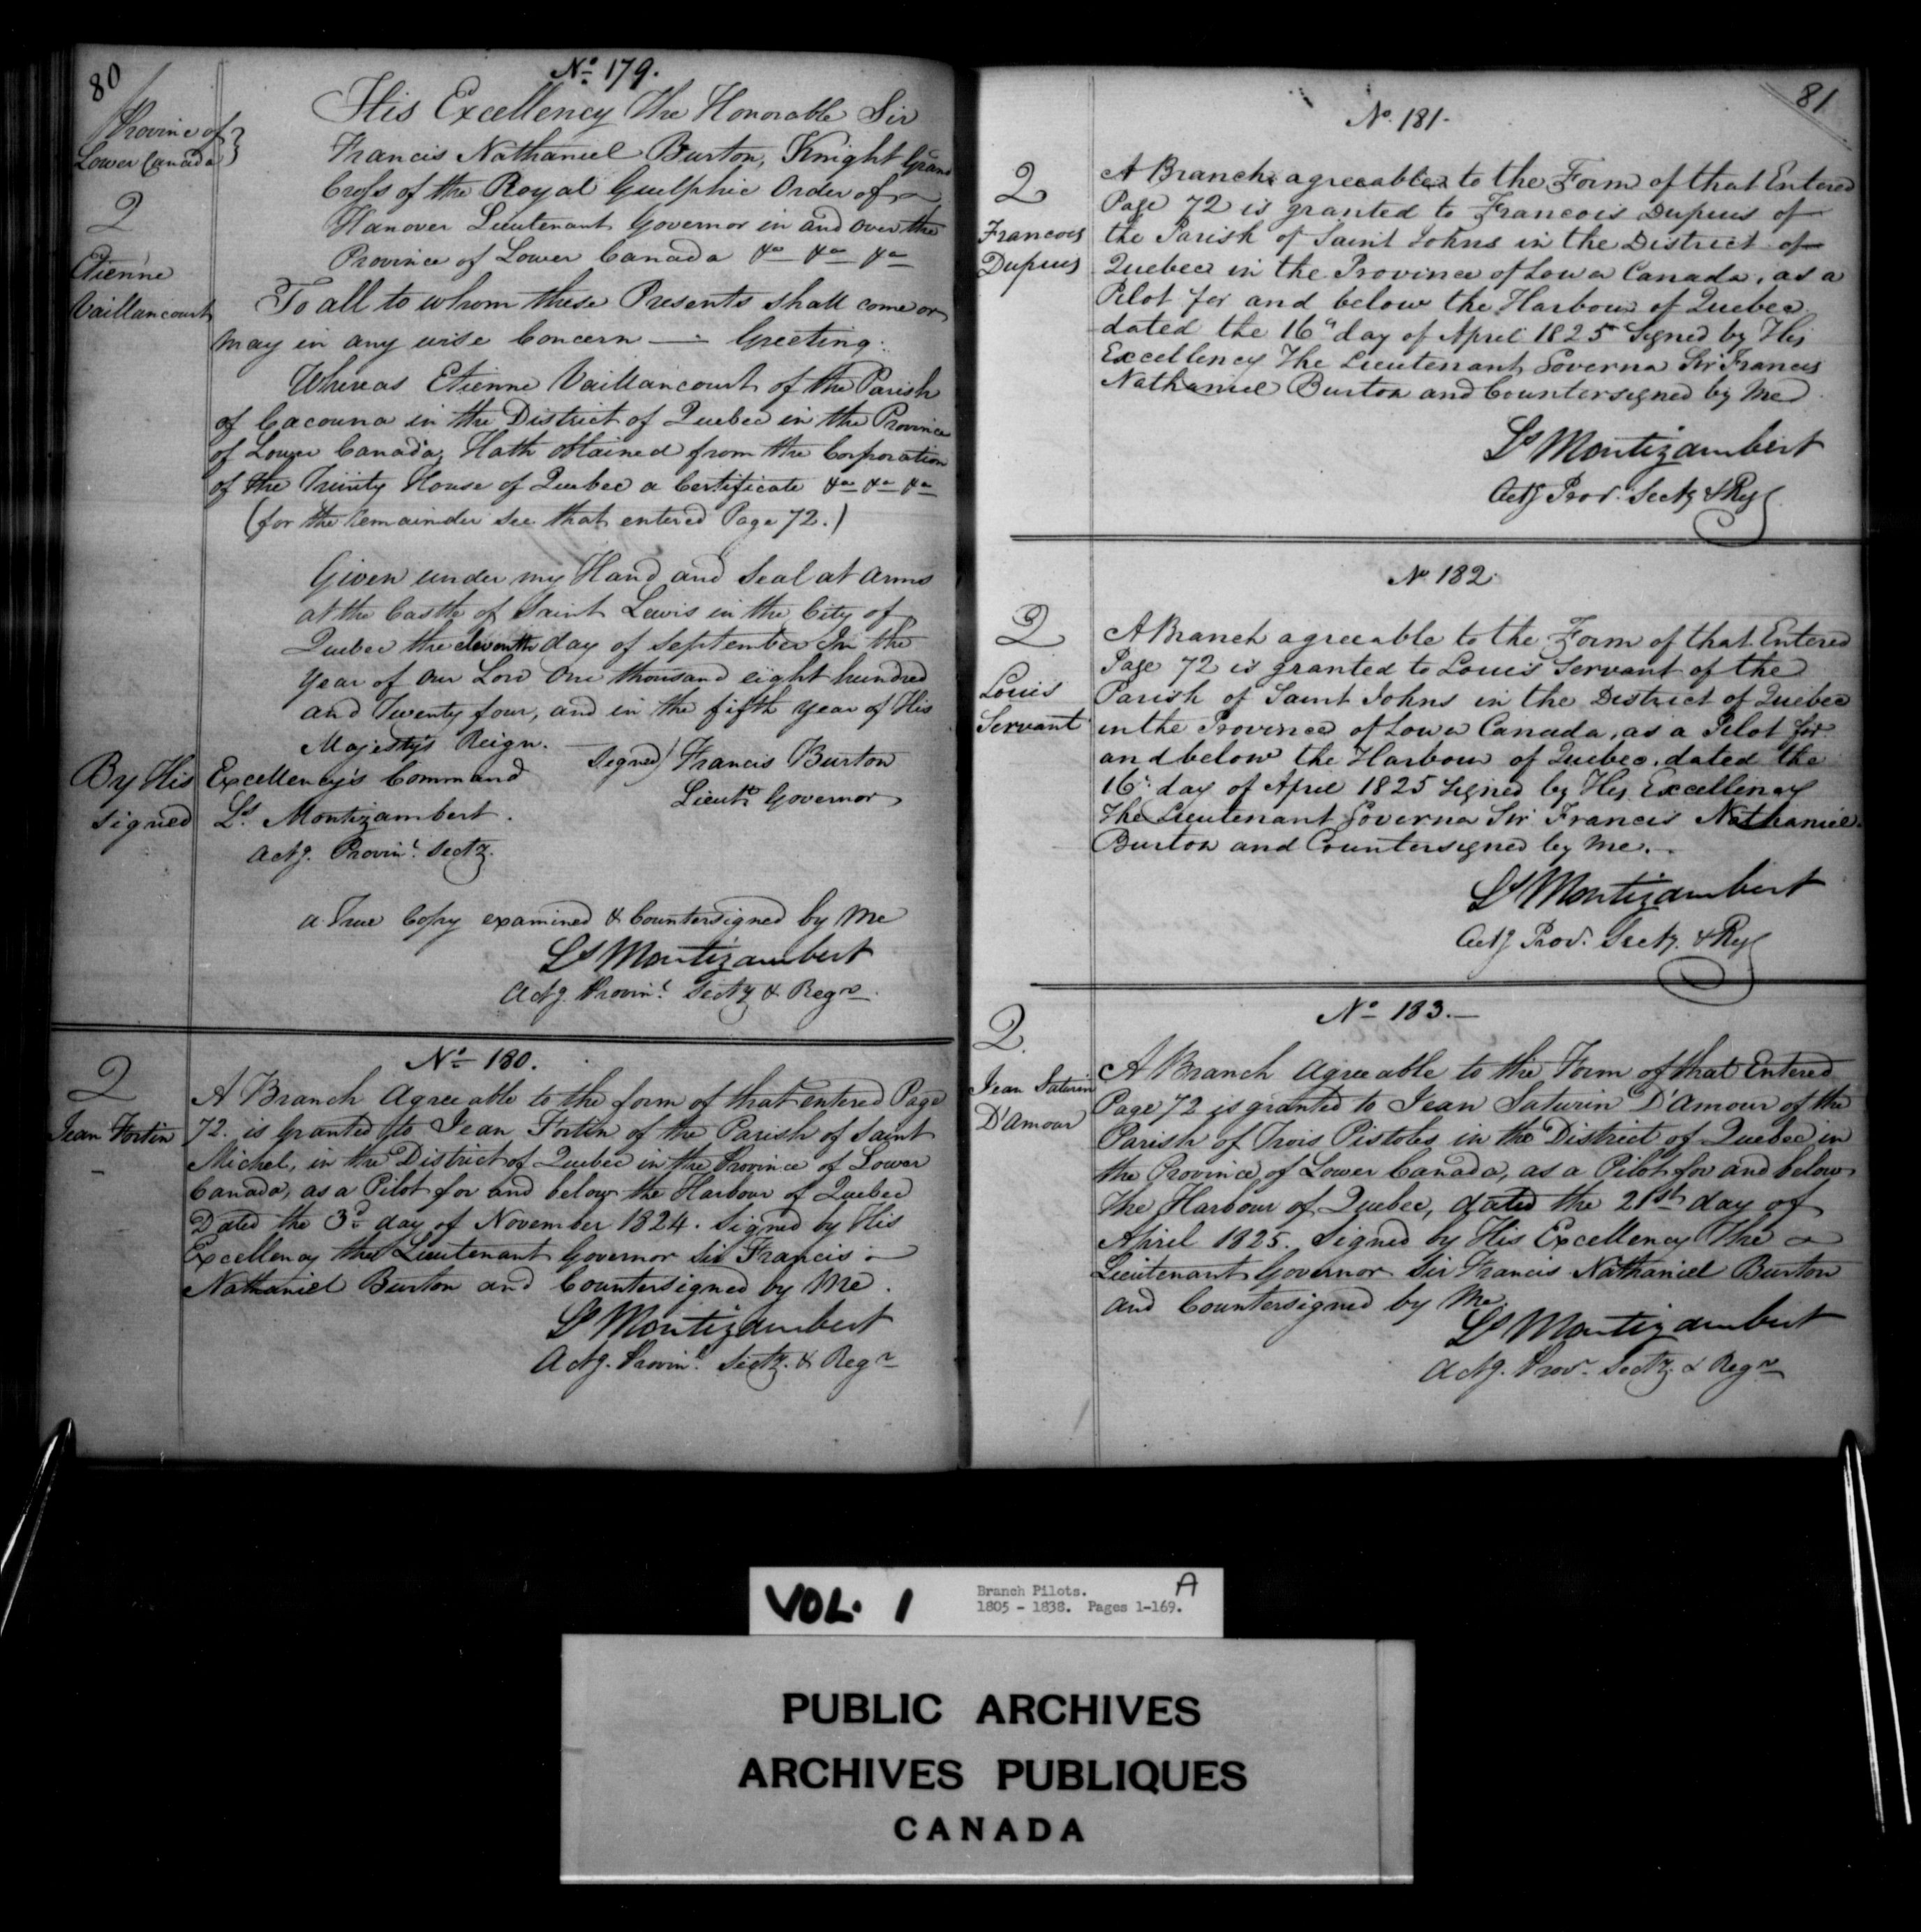 80
No. 179.
Province of }
Lower Canada }
2
Etienne
Vaillancourt
His Excellency The Honorable Sir
Francis Nathaniel Burton, Knight Grand
Cross of the Royal Guelphic Order of
Hanover Lieutenant Governor in and over the
Province of Lower Canada &a &a &a
To all to whom these Presents shall come or
may in any wise Concern — Greeting:
Whereas Etienne Vaillancourt of the Parish
of Cacouna in the District of Quebec in the Province
of Lower Canada, Hath obtained from the Corporation
of the Trinity House of Quebec a Certificate &a &a &a
(for the remainder see that entered Page 72.)
Given under my Hand and Seal at Arms
at the Castle of Saint Lewis in the City of
Quebec the eleventh day of September In the
year of Our Lord One thousand eight hundred
and Twenty four, and in the fifth year of His
Majesty's Reign.
Signed) Francis Burton
Lieutt. Governor
By His Excellency's Command
Signed Ls. Montizambert.
Actg. Provinl. Secty.
a True Copy examined & Countersigned by Me
Ls Montizambert
Actg. Provinl. Secty & Regr.
No. 180.
2
Jean Fortin
A Branch Agreeable to the form of that entered Page
72. is Granted to Jean Fortin of the Parish of Saint
Michel, in the District of Quebec in the Province of Lower
Canada, as a Pilot for and below the Harbour of Quebec
Dated the 3d. day of November 1824. Signed by His
Excellency the Lieutenant Governor Sir Francis
Nathaniel Burton and Countersigned by Me.
Ls Montizambert
Actg. Provinl. Secty. & Regr
81
No. 181.
2
Francois
Dupuis
A Branch agreeable to the Form of that Entered
Page 72 is granted to Francois Dupuis of
the Parish of Saint Johns in the District of
Quebec in the Province of Lower Canada, as a
Pilot for and below the Harbour of Quebec
dated the 16th day of April 1825 Signed by His
Excellency The Lieutenant Governor Sir Francis
Nathaniel Burton and Countersigned by Me
Ls Montizambert
Actg Provl. Secty & Regr
No 182.
2
Louis
Servant
A Branch agreeable to the Form of that Entered
Page 72 is granted to Louis Servant of the
Parish of Saint Johns in the District of Quebec
in the Province of Lower Canada, as a Pilot for
and below the Harbour of Quebec, dated the
16th day of April 1825 Signed by His Excellency
The Lieutenant Governor Sir Francis Nathaniel
Burton and Countersigned by Me.
Ls Montizambert
Actg Provl. Secty. & Regr
No. 183.
2.
Jean Saturin
D'Amour
A Branch Agreeable to the Form of that Entered
Page 72 is granted to Jean Saturin D'Amour of the
Parish of Trois Pistoles in the District of Quebec in
the Province of Lower Canada, as a Pilot for and below
the Harbour of Quebec, dated the 21st day of
April 1825. Signed by His Excellency The
Lieutenant Governor Sir Francis Nathaniel Burton
and Countersigned by Me
Ls Montizambert
Actg. Provl. Secty & Regr
VOL. 1
Branch Pilots.
1805 - 1838. Pages 1-169.
A
PUBLIC ARCHIVES
ARCHIVES PUBLIQUES
CANADA